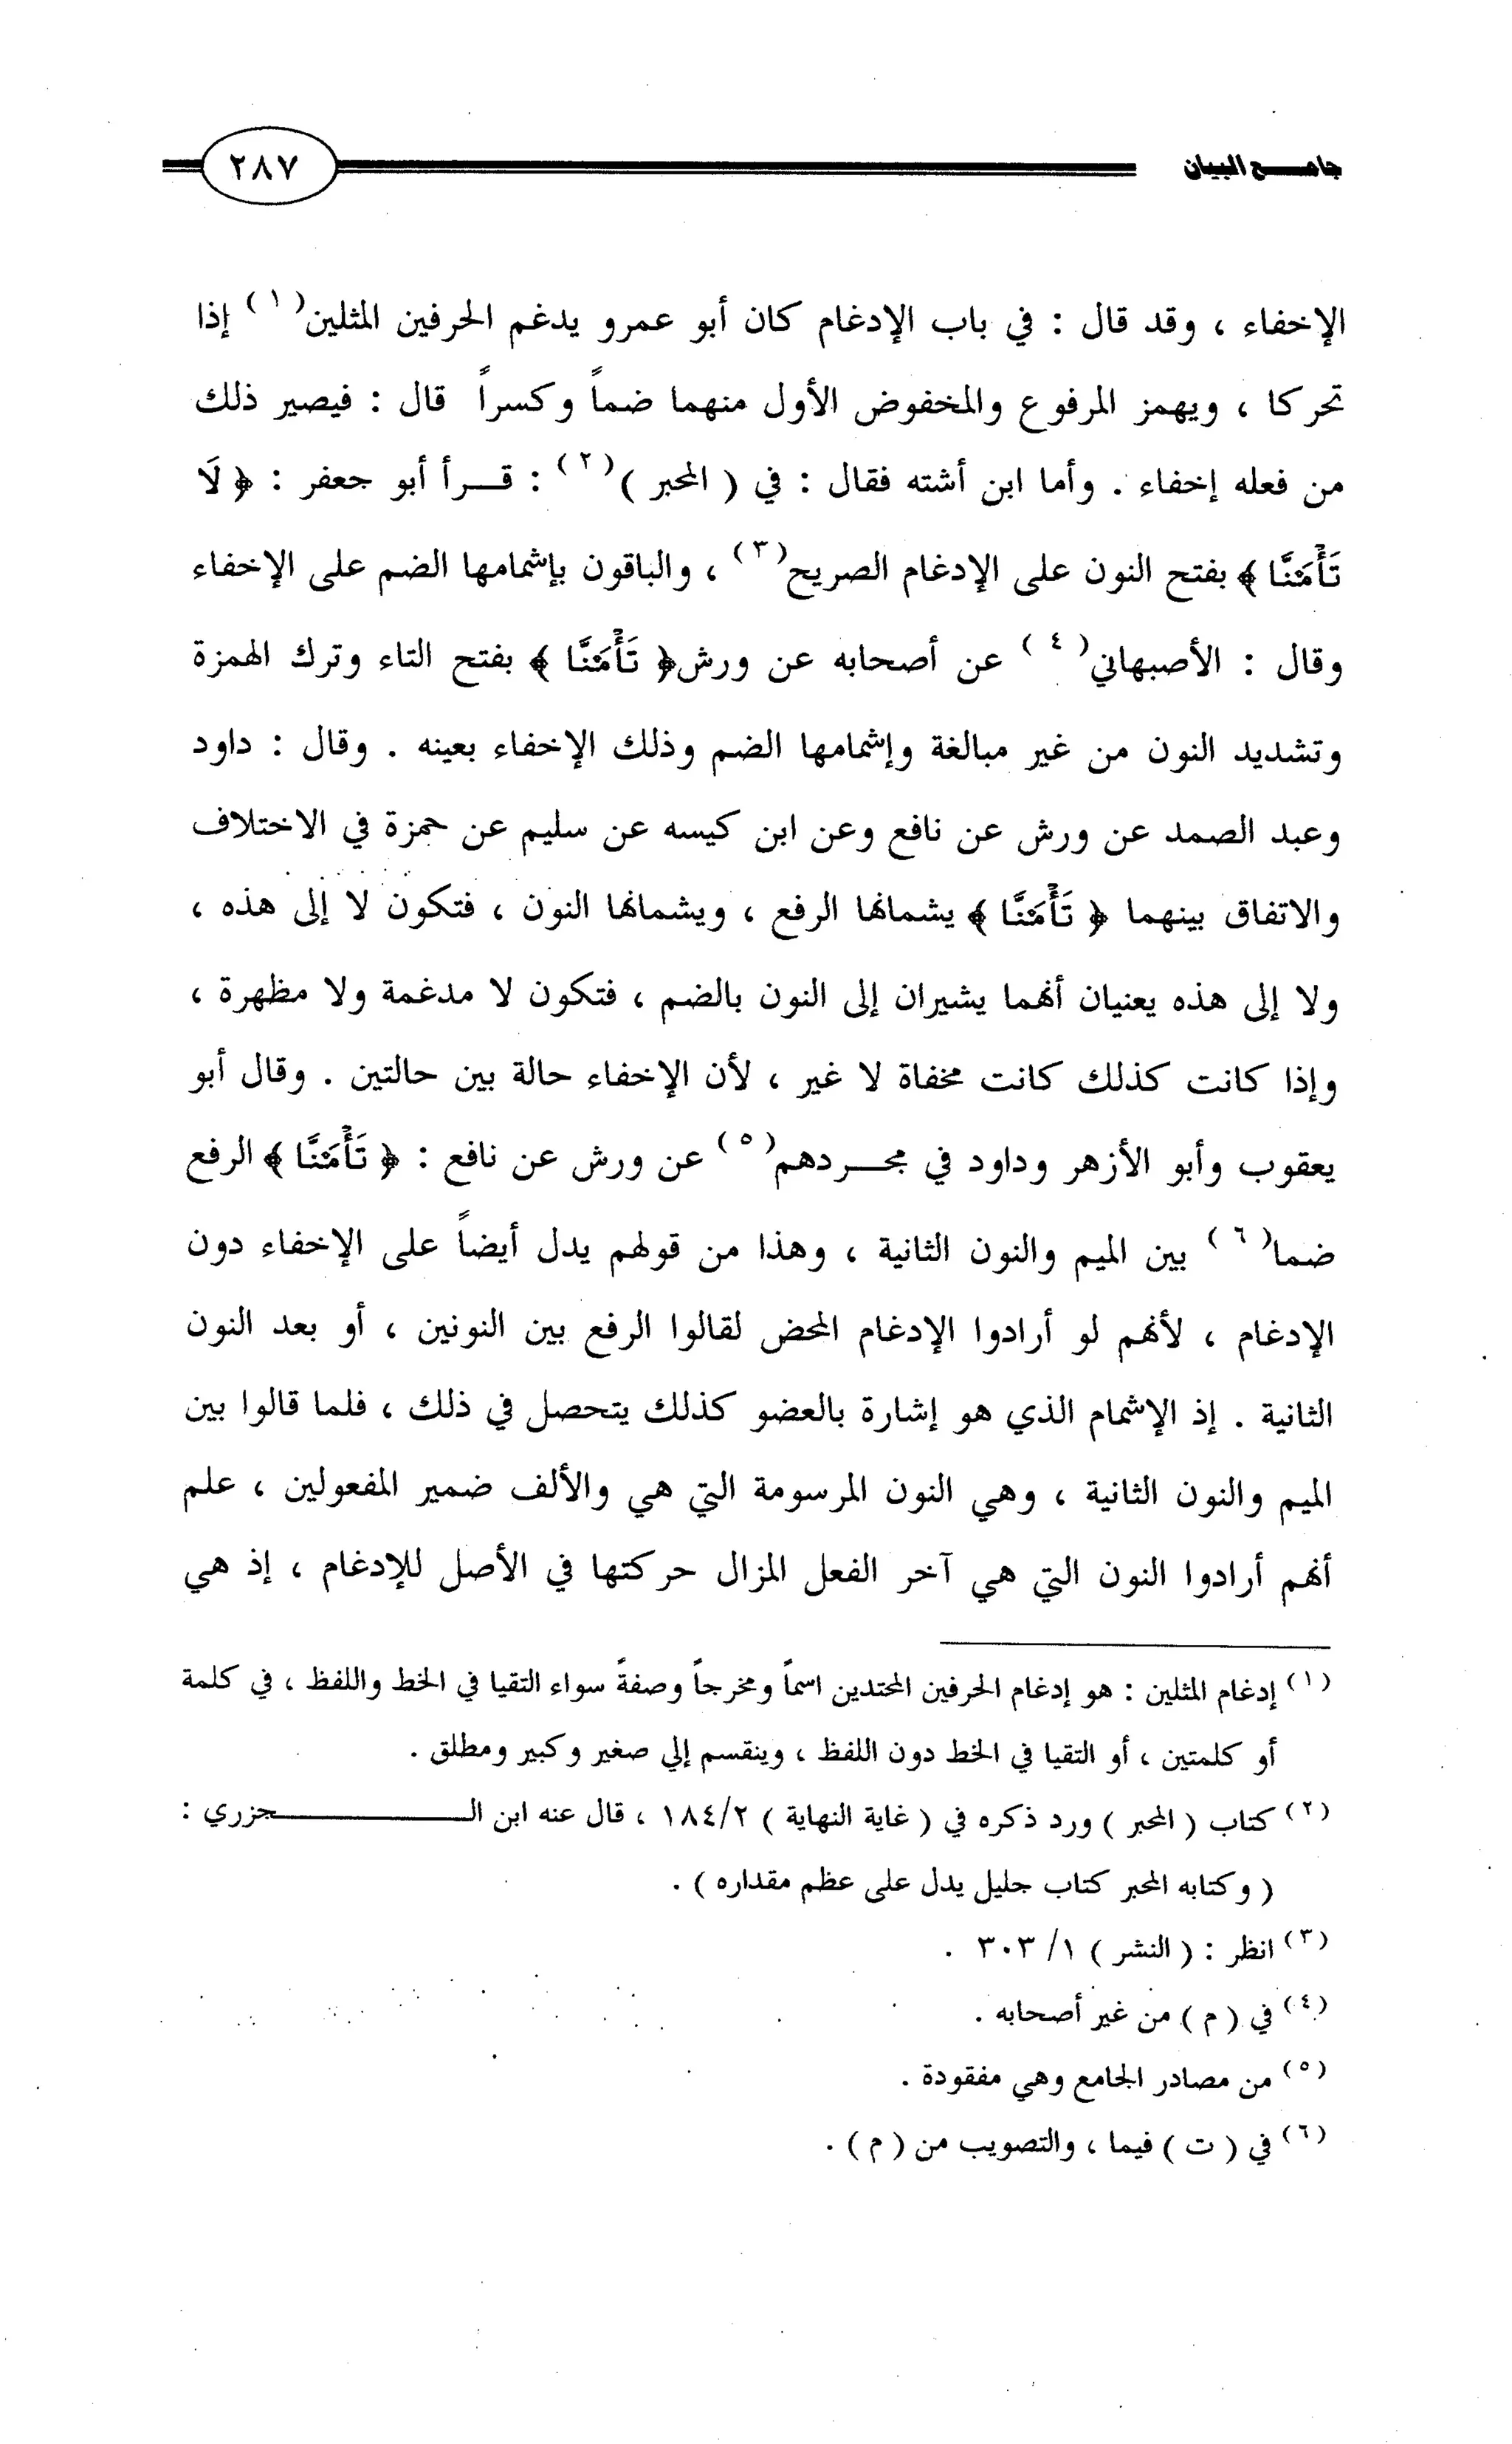 جامـــع البيان
٢٨٧
الإخفاء ، وقد قال : في باب الإدغام كان أبو عمرو يدغم الحرفين المثلين(١) إذا
تحركا ، ويهمز المرفوع والمخفوض الأول منهما ضماً وكسراً قال : فيصير ذلك
من فعله إخفاء . وأما ابن أشته فقال : في ( المحبر )(٢) : قــرأ أبو جعفر : ﴿ لَا
تَأْمَ۫نَّا ﴾ بفتح النون على الإدغام الصريح(٣) ، والباقون بإشمامها الضم على الإخفاء
وقال : الأصبهاني(٤) عن أصحابه عن ورش﴿ تَأْمَ۫نَّا ﴾ بفتح التاء وترك الهمزة
وتشديد النون من غير مبالغة وإشمامها الضم وذلك الإخفاء بعينه . وقال : داود
وعبد الصمد عن ورش عن نافع وعن ابن كيسه عن سليم عن حمزة في الاختلاف
والاتفاق بينهما ﴿ تَأْمَ۫نَّا ﴾ يشمانها الرفع ، ويشمانها النون ، فتكون لا إلى هذه ،
ولا إلى هذه يعنيان أنهما يشيران إلى النون بالضم ، فتكون لا مدغمة ولا مظهرة ،
وإذا كانت كذلك كانت مخفاة لا غير ، لأن الإخفاء حالة بين حالتين . وقال أبو
يعقوب وأبو الأزهر وداود في مجــردهم(٥) عن ورش عن نافع : ﴿ تَأْمَ۫نَّا ﴾ الرفع
ضما(٦) بين الميم والنون الثانية ، وهذا من قولهم يدل أيضاً على الإخفاء دون
الإدغام ، لأنهم لو أرادوا الإدغام المحض لقالوا الرفع بين النونين ، أو بعد النون
الثانية . إذ الإشمام الذي هو إشارة بالعضو كذلك يتحصل في ذلك ، فلما قالوا بين
الميم والنون الثانية ، وهي النون المرسومة التي هي والألف ضمير المفعولين ، علم
أنهم أرادوا النون التي هي آخر الفعل المزال حركتها في الأصل للإدغام ، إذ هي
(١) إدغام المثلين : هو إدغام الحرفين المحتدين اسماً ومخرجاً وصفةً سواء التقيا في الخط واللفظ ، في كلمة
أو كلمتين ، أو التقيا في الخط دون اللفظ ، وينقسم إلي صغير وكبير ومطلق .
(٢) كتاب ( المحبر ) ورد ذكره في ( غاية النهاية ) ١٨٤/٢ ، قال عنه ابن الـــــــــجزري :
( وكتابه المحبر كتاب جليل يدل على عظم مقداره ) .
(٣) انظر : ( النشر ) ١/ ٣٠٣ .
(٤) في ( م ) من غير أصحابه .
(٥) من مصادر الجامع وهي مفقودة .
(٦) في ( ت ) فيما ، والتصويب من ( م ) .